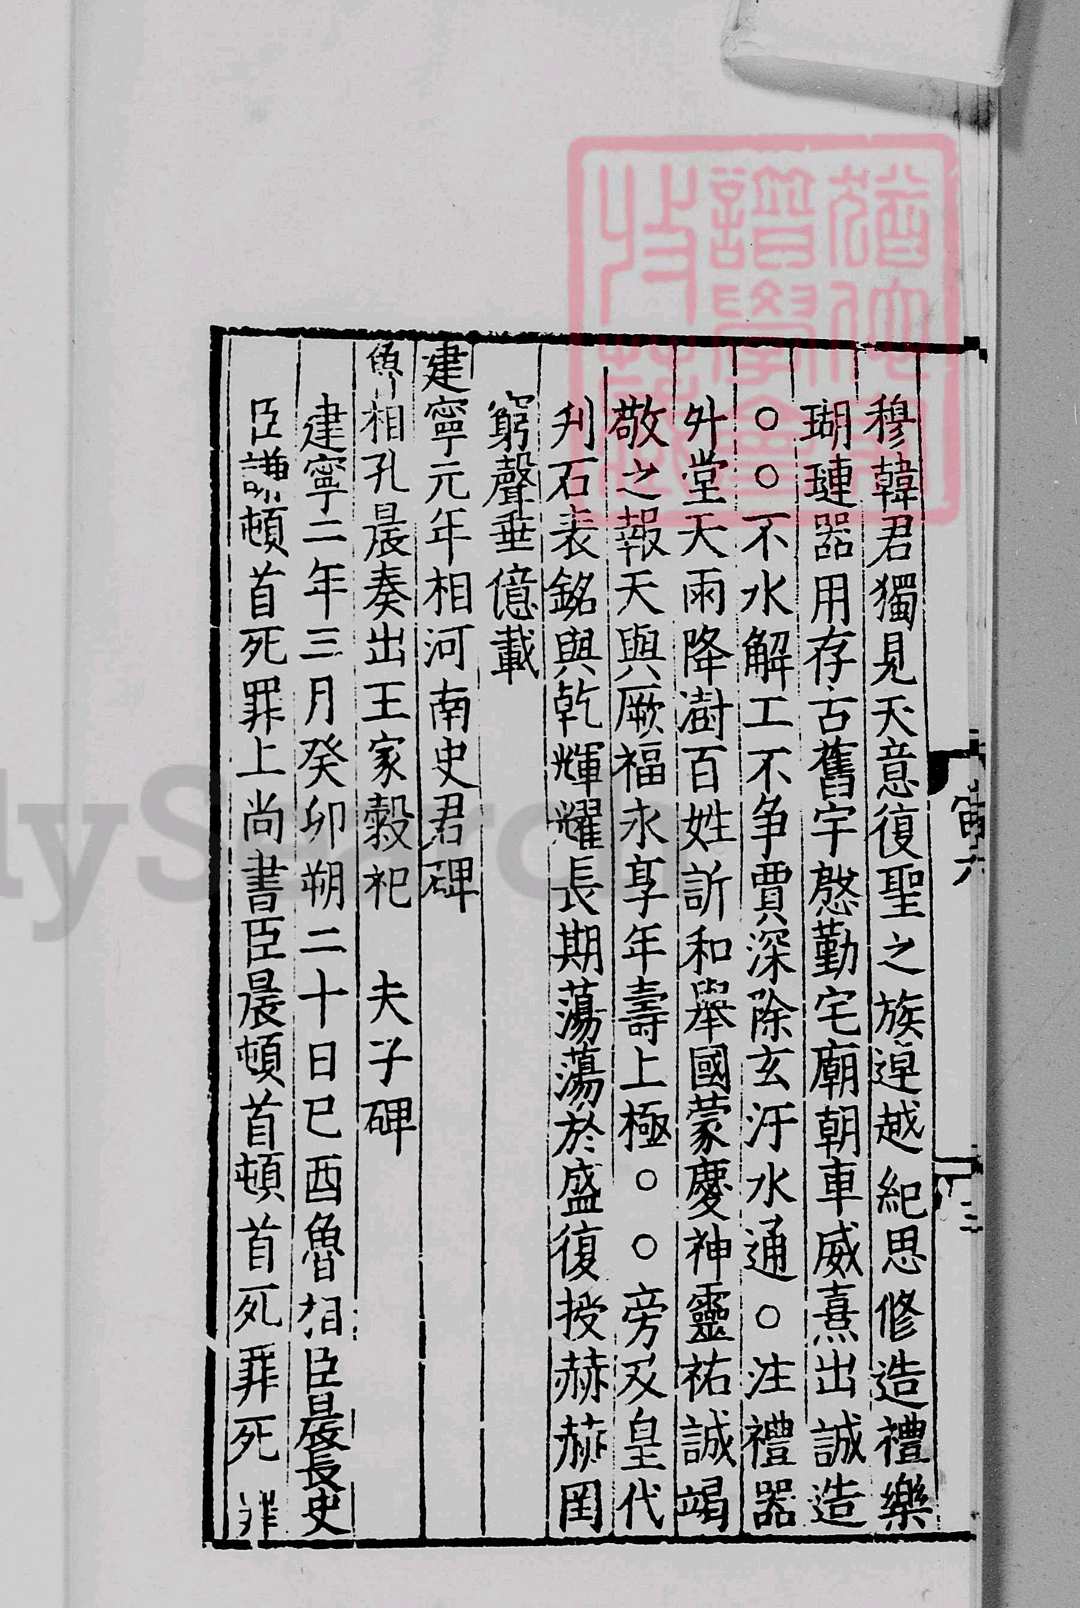 穆韓君獨見天意復聖之族逴越紀思修造禮樂
瑚璉器用存古舊宇慇勤宅廟朝車威熹出誠造
○○不水解工不争賈深除玄汙水通○注禮器
升堂天雨降澍百姓訢和舉國蒙慶神靈祐誠竭
敬之報天與厥福永享年壽上極○○旁及皇代
刋石表銘與乾輝耀長期蕩蕩於盛復授赫赫罔
窮聲垂億載
建寧元年相河南史君碑
魯相孔晨奏出王家穀祀　夫子碑
建寧二年三月癸卯朔二十日己酉魯相臣晨長史
臣謙頓首死罪上尚書臣晨頓首頓首死罪死罪